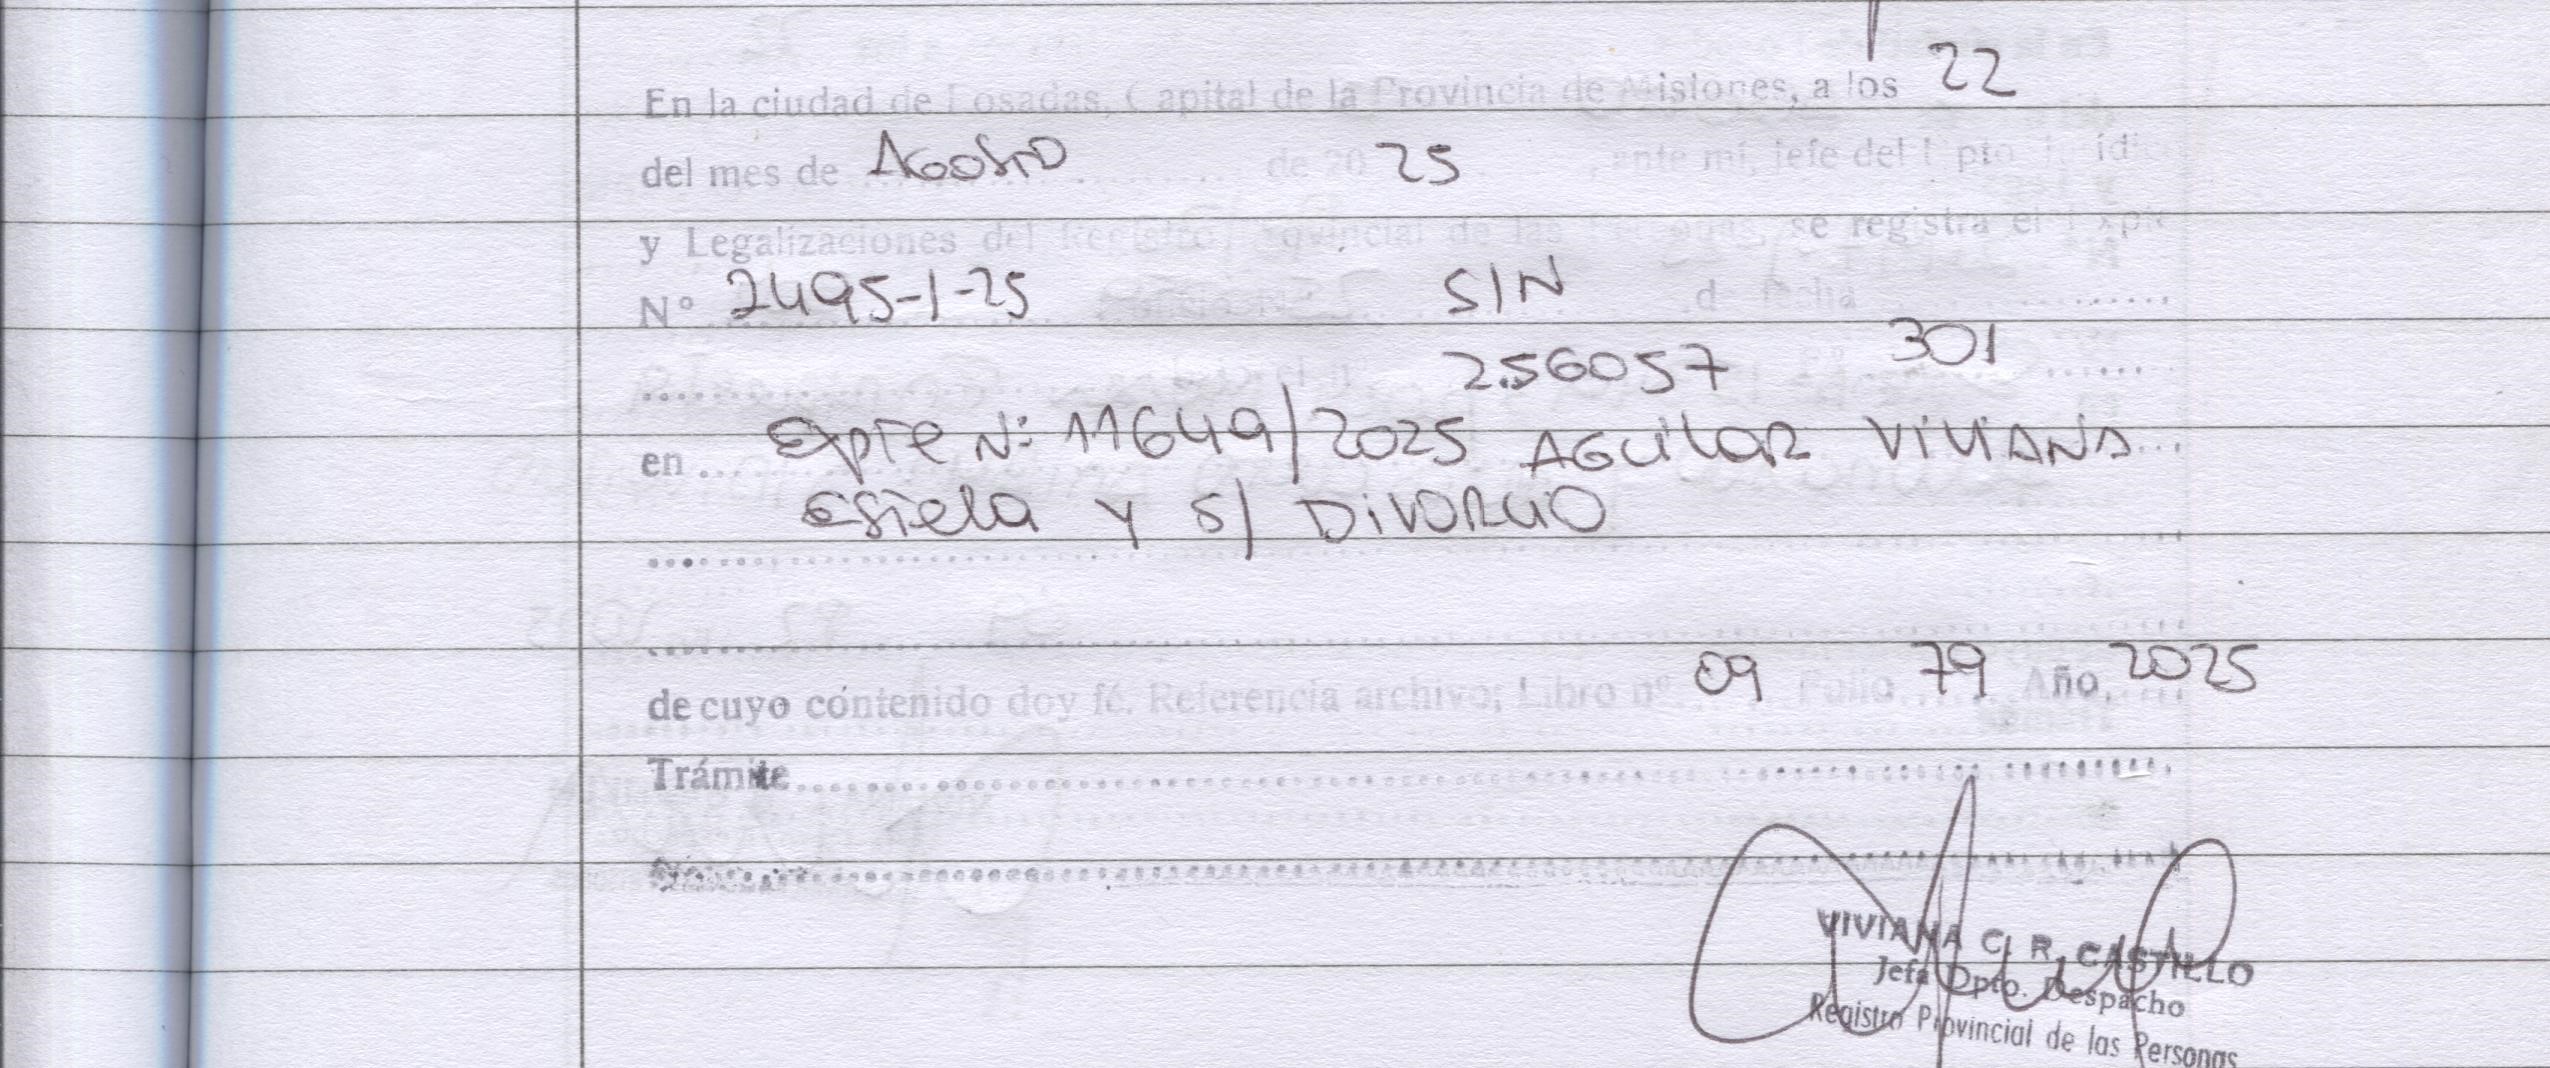 En la ciudad de Posadas, Capital de la Provincia de Misiones, a los 22
del mes de Agosto de 20 25, ante mi, jefe del Dpto. Jurídico
y Legalizaciones del Registro Provincial de las Personas, se registra el Expte
Nº 2495-1-25 SIN de fecha
256057 301
en Expte Nº: 11649/2025 AGUILAR VIVIANA
ESTELA Y S/ DIVORCIO
de cuyo contenido doy fé. Referencia archivo; Libro nº 09 Folio 79 Año 2025
Trámite
VIVIANA C. R. CASTILLO
Jefa Dpto. Despacho
Registro Provincial de las Personas